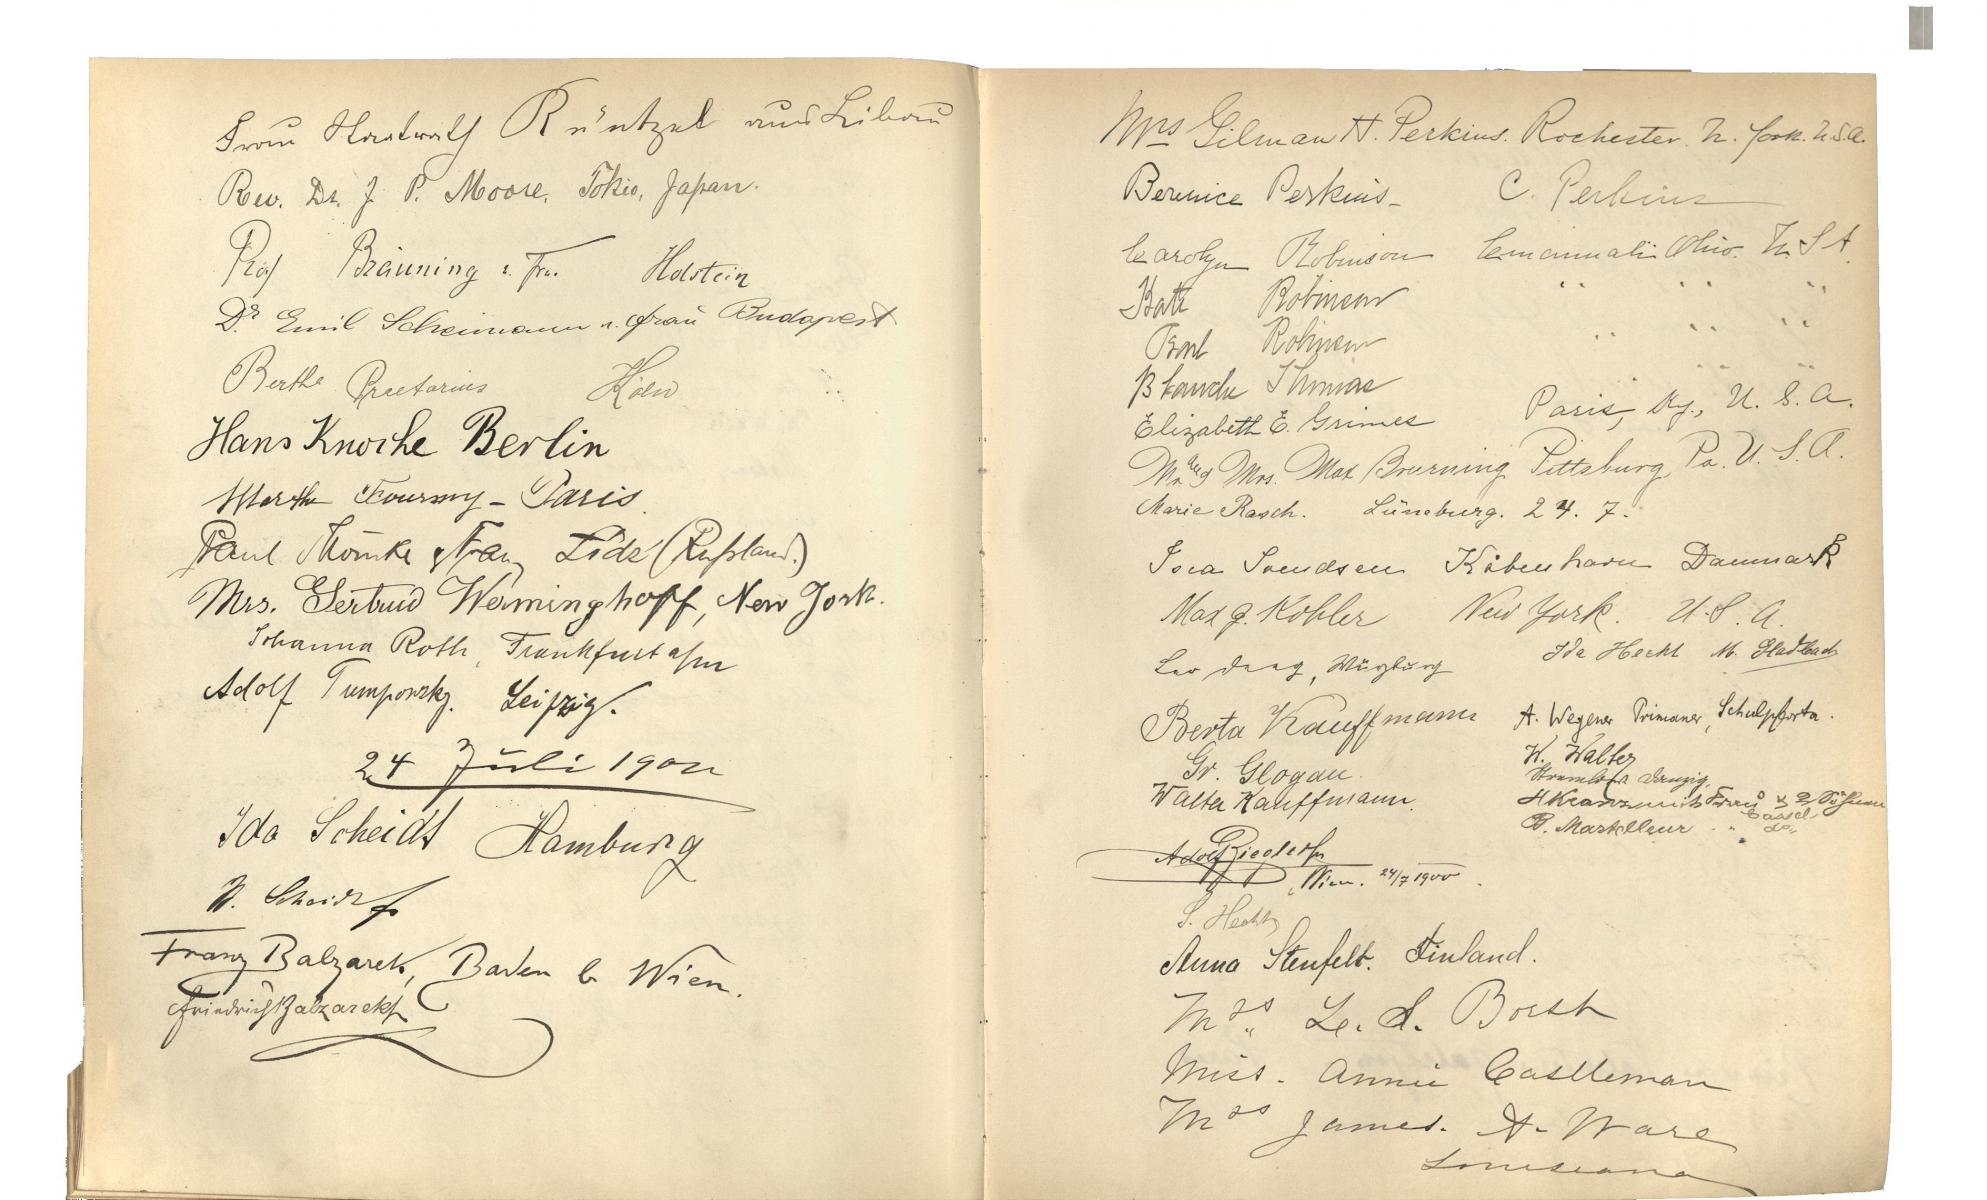 Frau Staatsrath Küntzel aus Libau
Rev. Dr. J. P. Moore, Tokio, Japan.
Prof Bräuning u. Fr. Holstein
Dr Emil Scheimann u. Frau Budapest
Berthe Praetorius Köln
Hans Knoche Berlin
Marthe Fournny – Paris.
Paul Thomke & Frau Lidz (Rußland.)
Mrs. Gertrud Werminghoff, New York.
Johanna Roth, Frankfurt a/m
Adolf Tumpowsky. Leipzig.
24 Juli 1900
Ida Scheidt Hamburg
W. Scheidt
Franz Balzarek, Baden b Wien.
Friedrich Balzarek
Mrs Gilman H. Perkins. Rochester. N. York. U.S.A.
Bernice Perkins – C. Perkins
Carolyn Robinson Cincinnati Ohio. U. S A.
Kate Robinson " " "
Robinson " " "
Blanche Thomas " "
Elizabeth E. Grimes Paris, Ky., U. S. A.
Mr. and Mrs. Max Bruening Pittsburg Pa. U. S. A.
Marie Rasch. Lüneburg. 24. 7.
Svendsen Köbenhavn Danmark
Max J. Kohler New York. U. S. A.
Ida Hecht M. Gladbach
Leo, Würzburg
Berta Kauffmann A. Wegener Primaner, Schulpforta.
Gr. Glogau. W. Walter
Danzig.
Walter Kauffmann. H Kranz mit Frau u 2 Söhnen
Cassel
B. Martelleur " do.
Adolf Ziegler
Wien. 24/7 1900
S. Hecht
Anna Stenfelt. Finland.
Mrs L. S. Boesh
Miss. Annie Castleman
Mrs James. A. Ware
Louisiana